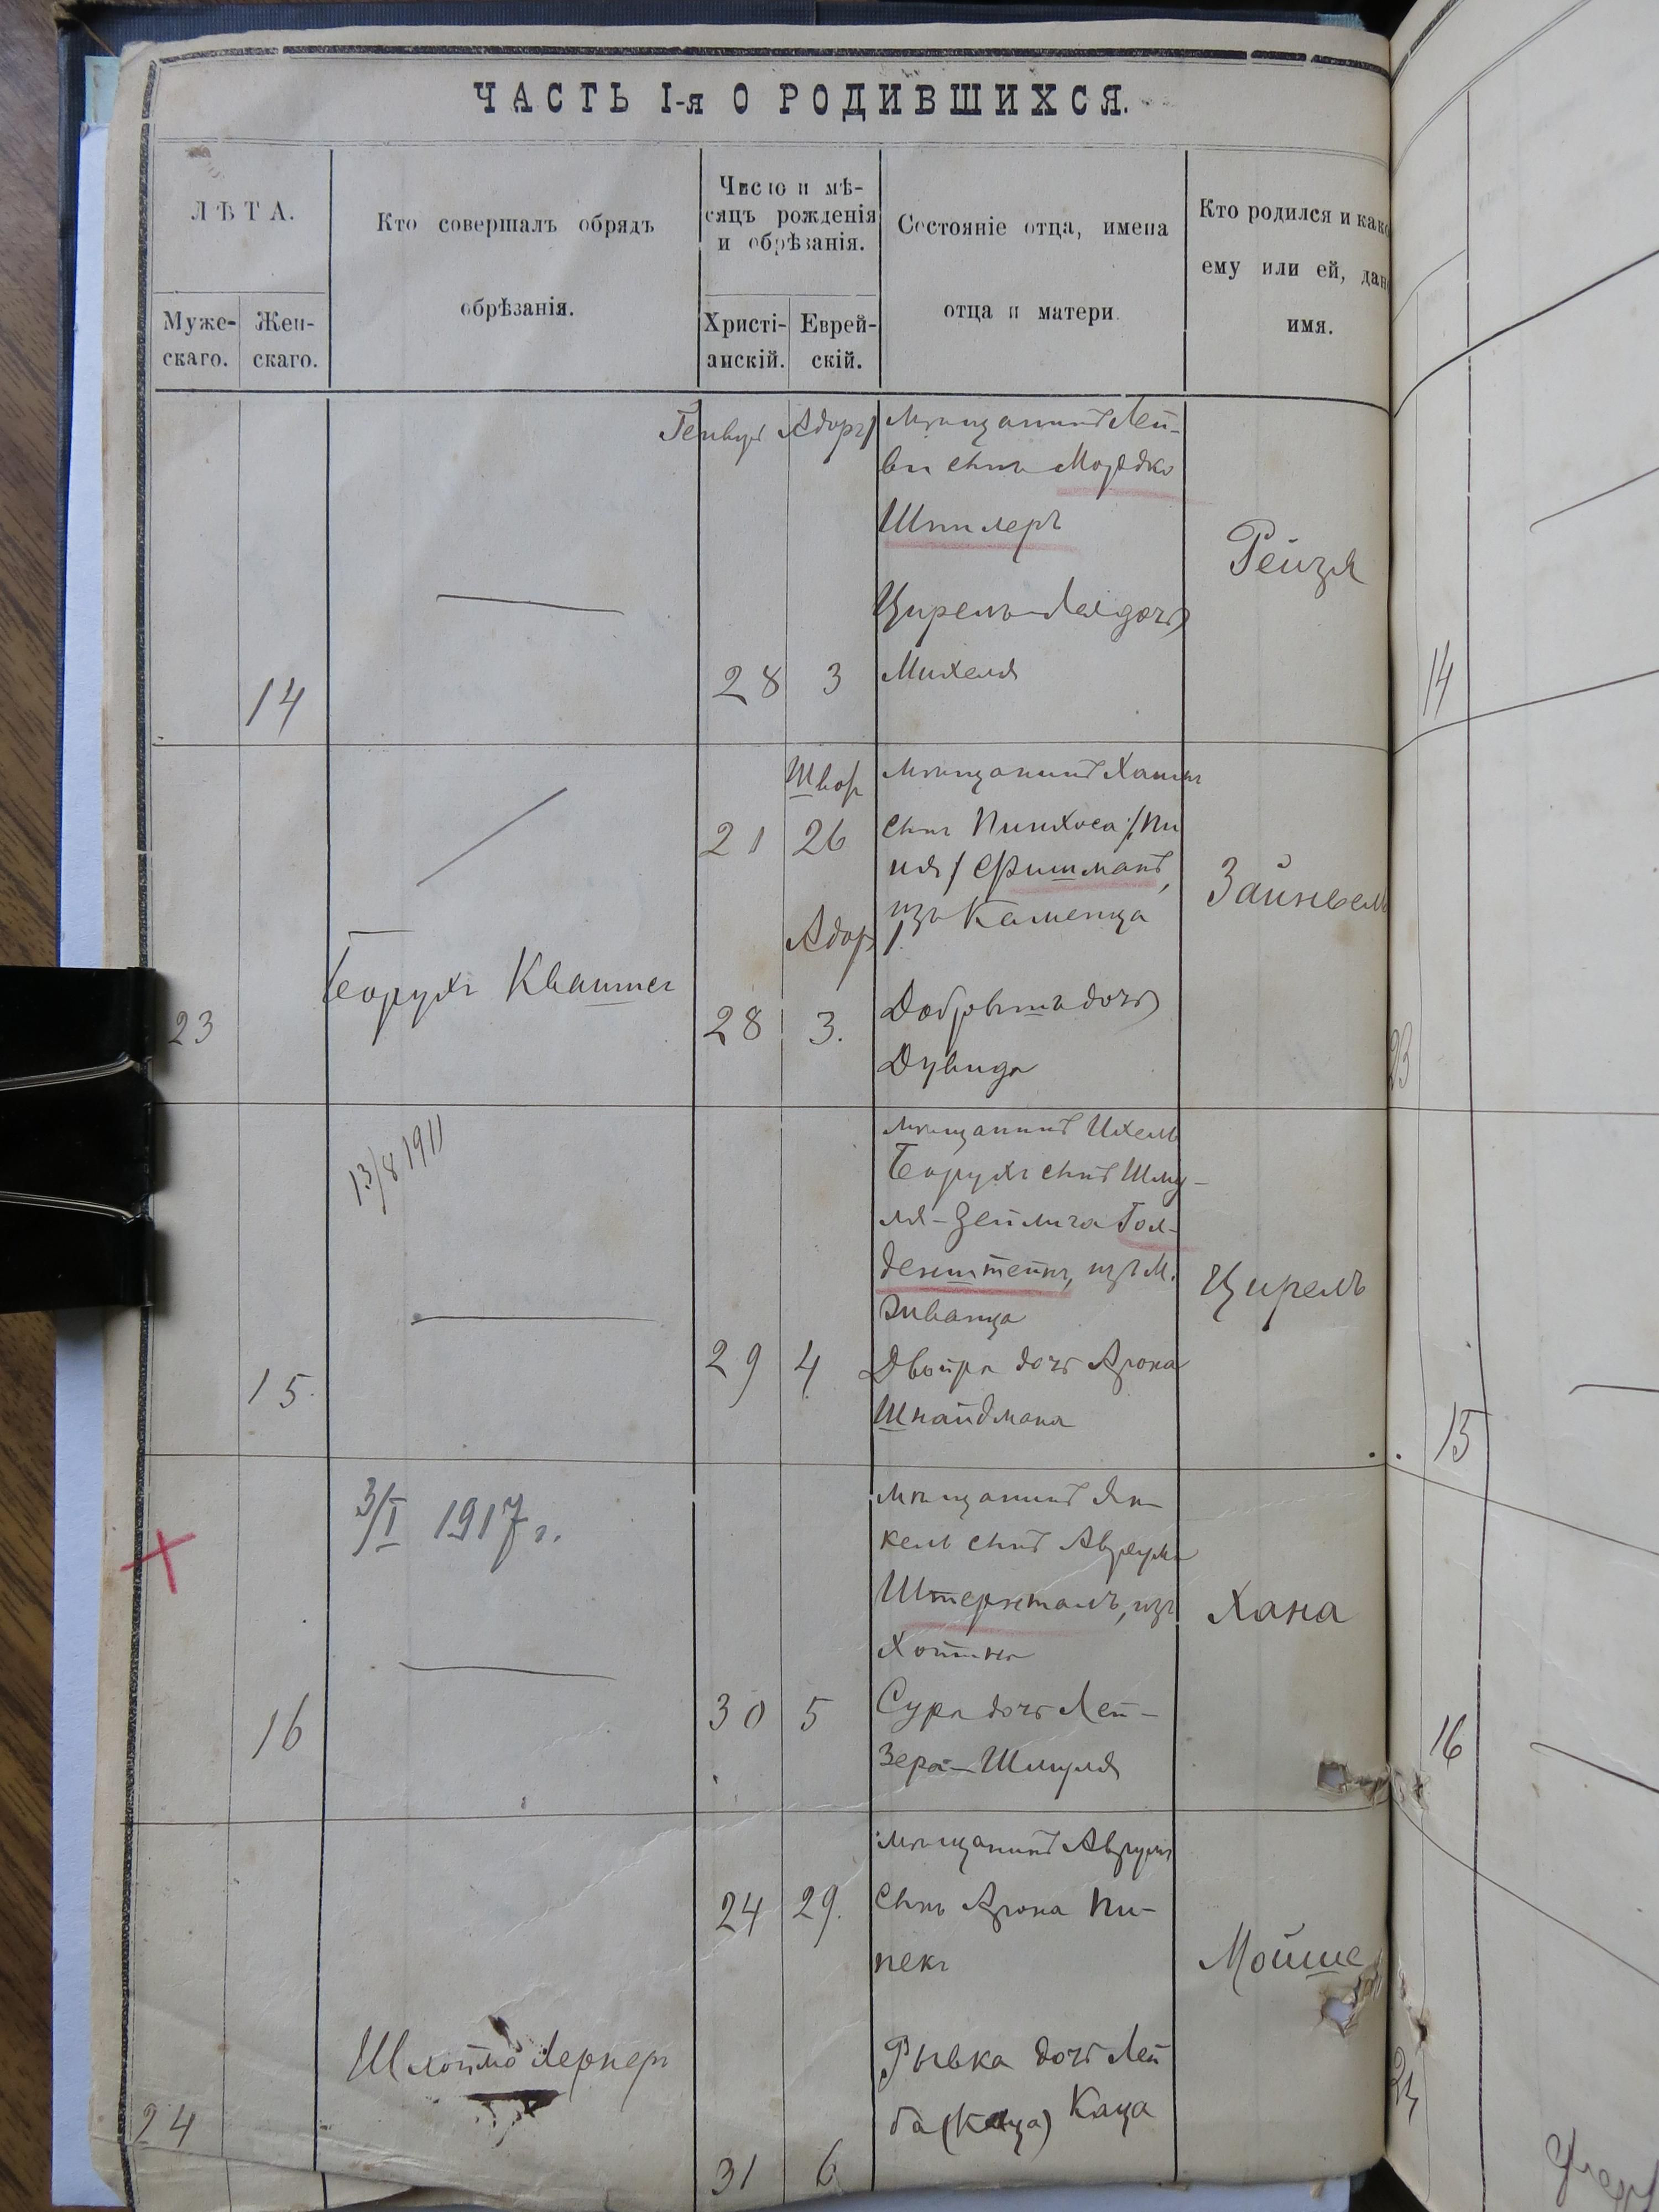 ЧАСТЬ I-я О РОДИВШИХСЯ.
ЛѢТА.
Муже-
скаго.
Жен-
скаго.
Кто совершалъ обрядъ
обрѣзанія.
Число и мѣ-
сяцъ рожденія
и обрѣзанія.
Христі-
анскій.
Еврей-
скій.
Состояніе отца, имена
отца и матери.
Кто родился и како
ему или ей, дан
имя.
14
28
3
Мѣщанинъ Лей-
сынъ Мордко
Шпилеръ
Цирель-Лея дочь
Михеля
Рейзя
14
23
Борухъ Квашта
21
28
26
Адор
3.
мѣщанинъ Хаимъ
сынъ Пинхоса /Пи
ня/ Фишманъ,
изъ Каменца
Добрышъ дочь
Дувида
Зайнвель
23
15.
13/8 1911
29
4
мѣщанинъ Ихель
Борухъ сынъ Шму-
ля-Зейлига Гол-
денштейнъ, изъ м.
Жванца
Двойра дочь Арона
Шнайдмана
Цирель
15
16
3/I 1917 г.
30
5
мѣщанинъ Ян-
кель сынъ Авраума
Штернталъ, изъ
Хотина
Сура дочь Лей-
зера-Шмуля
Хана
16
24
Шлоймо Лернеръ
24
31
29.
6
мѣщанинъ Аврумъ
сынъ Арона Пи-
пекъ
Рывка дочь Лей
ба (Каца) Каца
Мойше
24